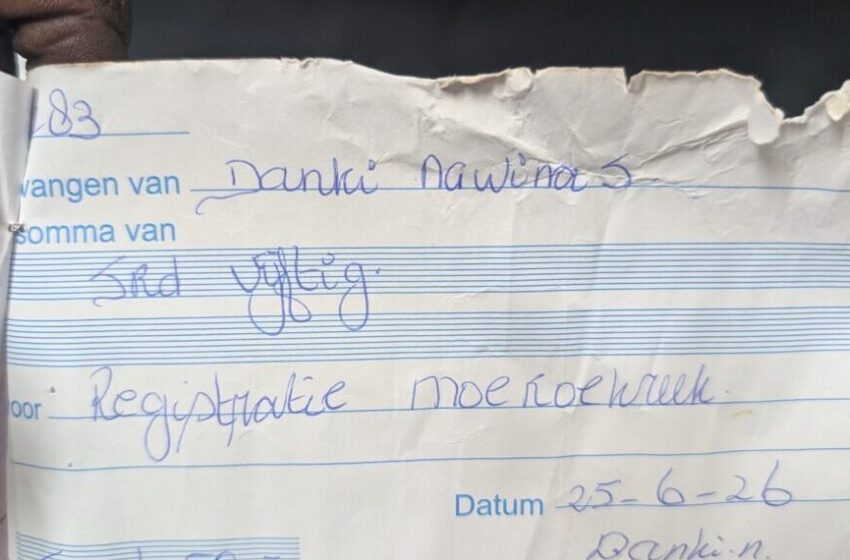 83
vangen van Danki Nawina S
somma van
SRd vijftig.
oor Registratie moeroekreek.
Datum 25-6-26
Danki.n.